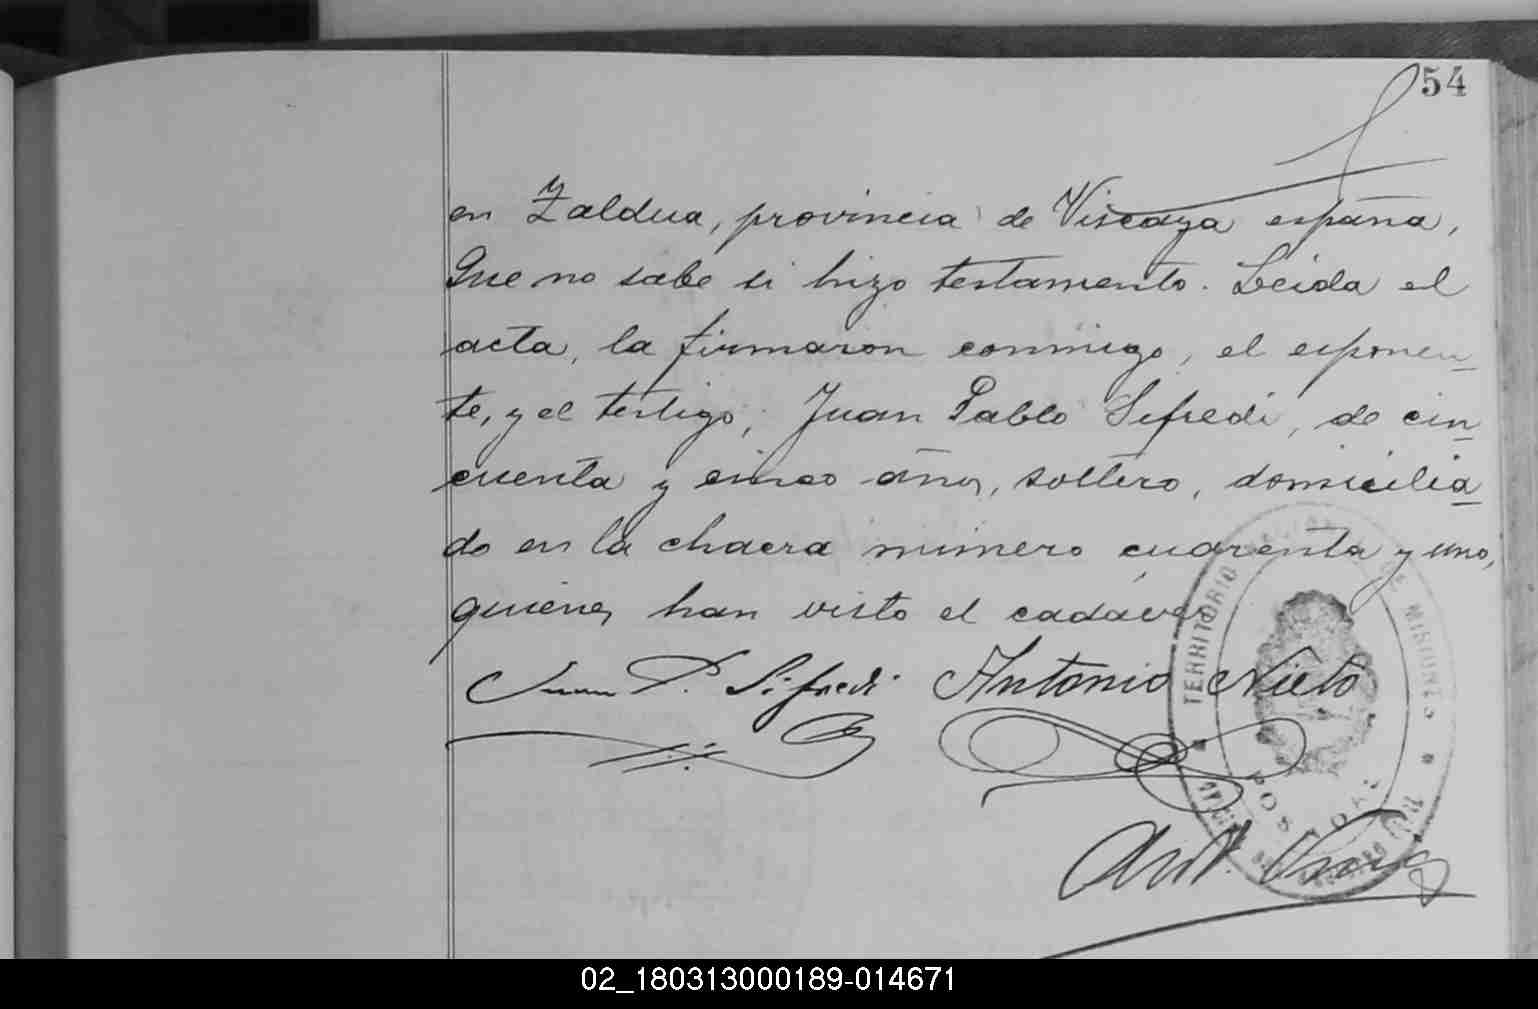 54
en Zaldua, provincia de Viscaya españa,
Que no sabe si hizo testamento. Leida el
acta, la firmaron conmigo, el esponen
te, y el testigo, Juan Pablo Sifredi, de cin
cuenta y cinco años, soltero, domicilia
do en la chacra número cuarenta y uno,
quienes han visto el cadáver
Juan P. Sifredi Antonio Nieto
TERRITORIO NACIONAL DE MISIONES
POSADAS
REGISTRO CIVIL
Ant.
02_180313000189-014671